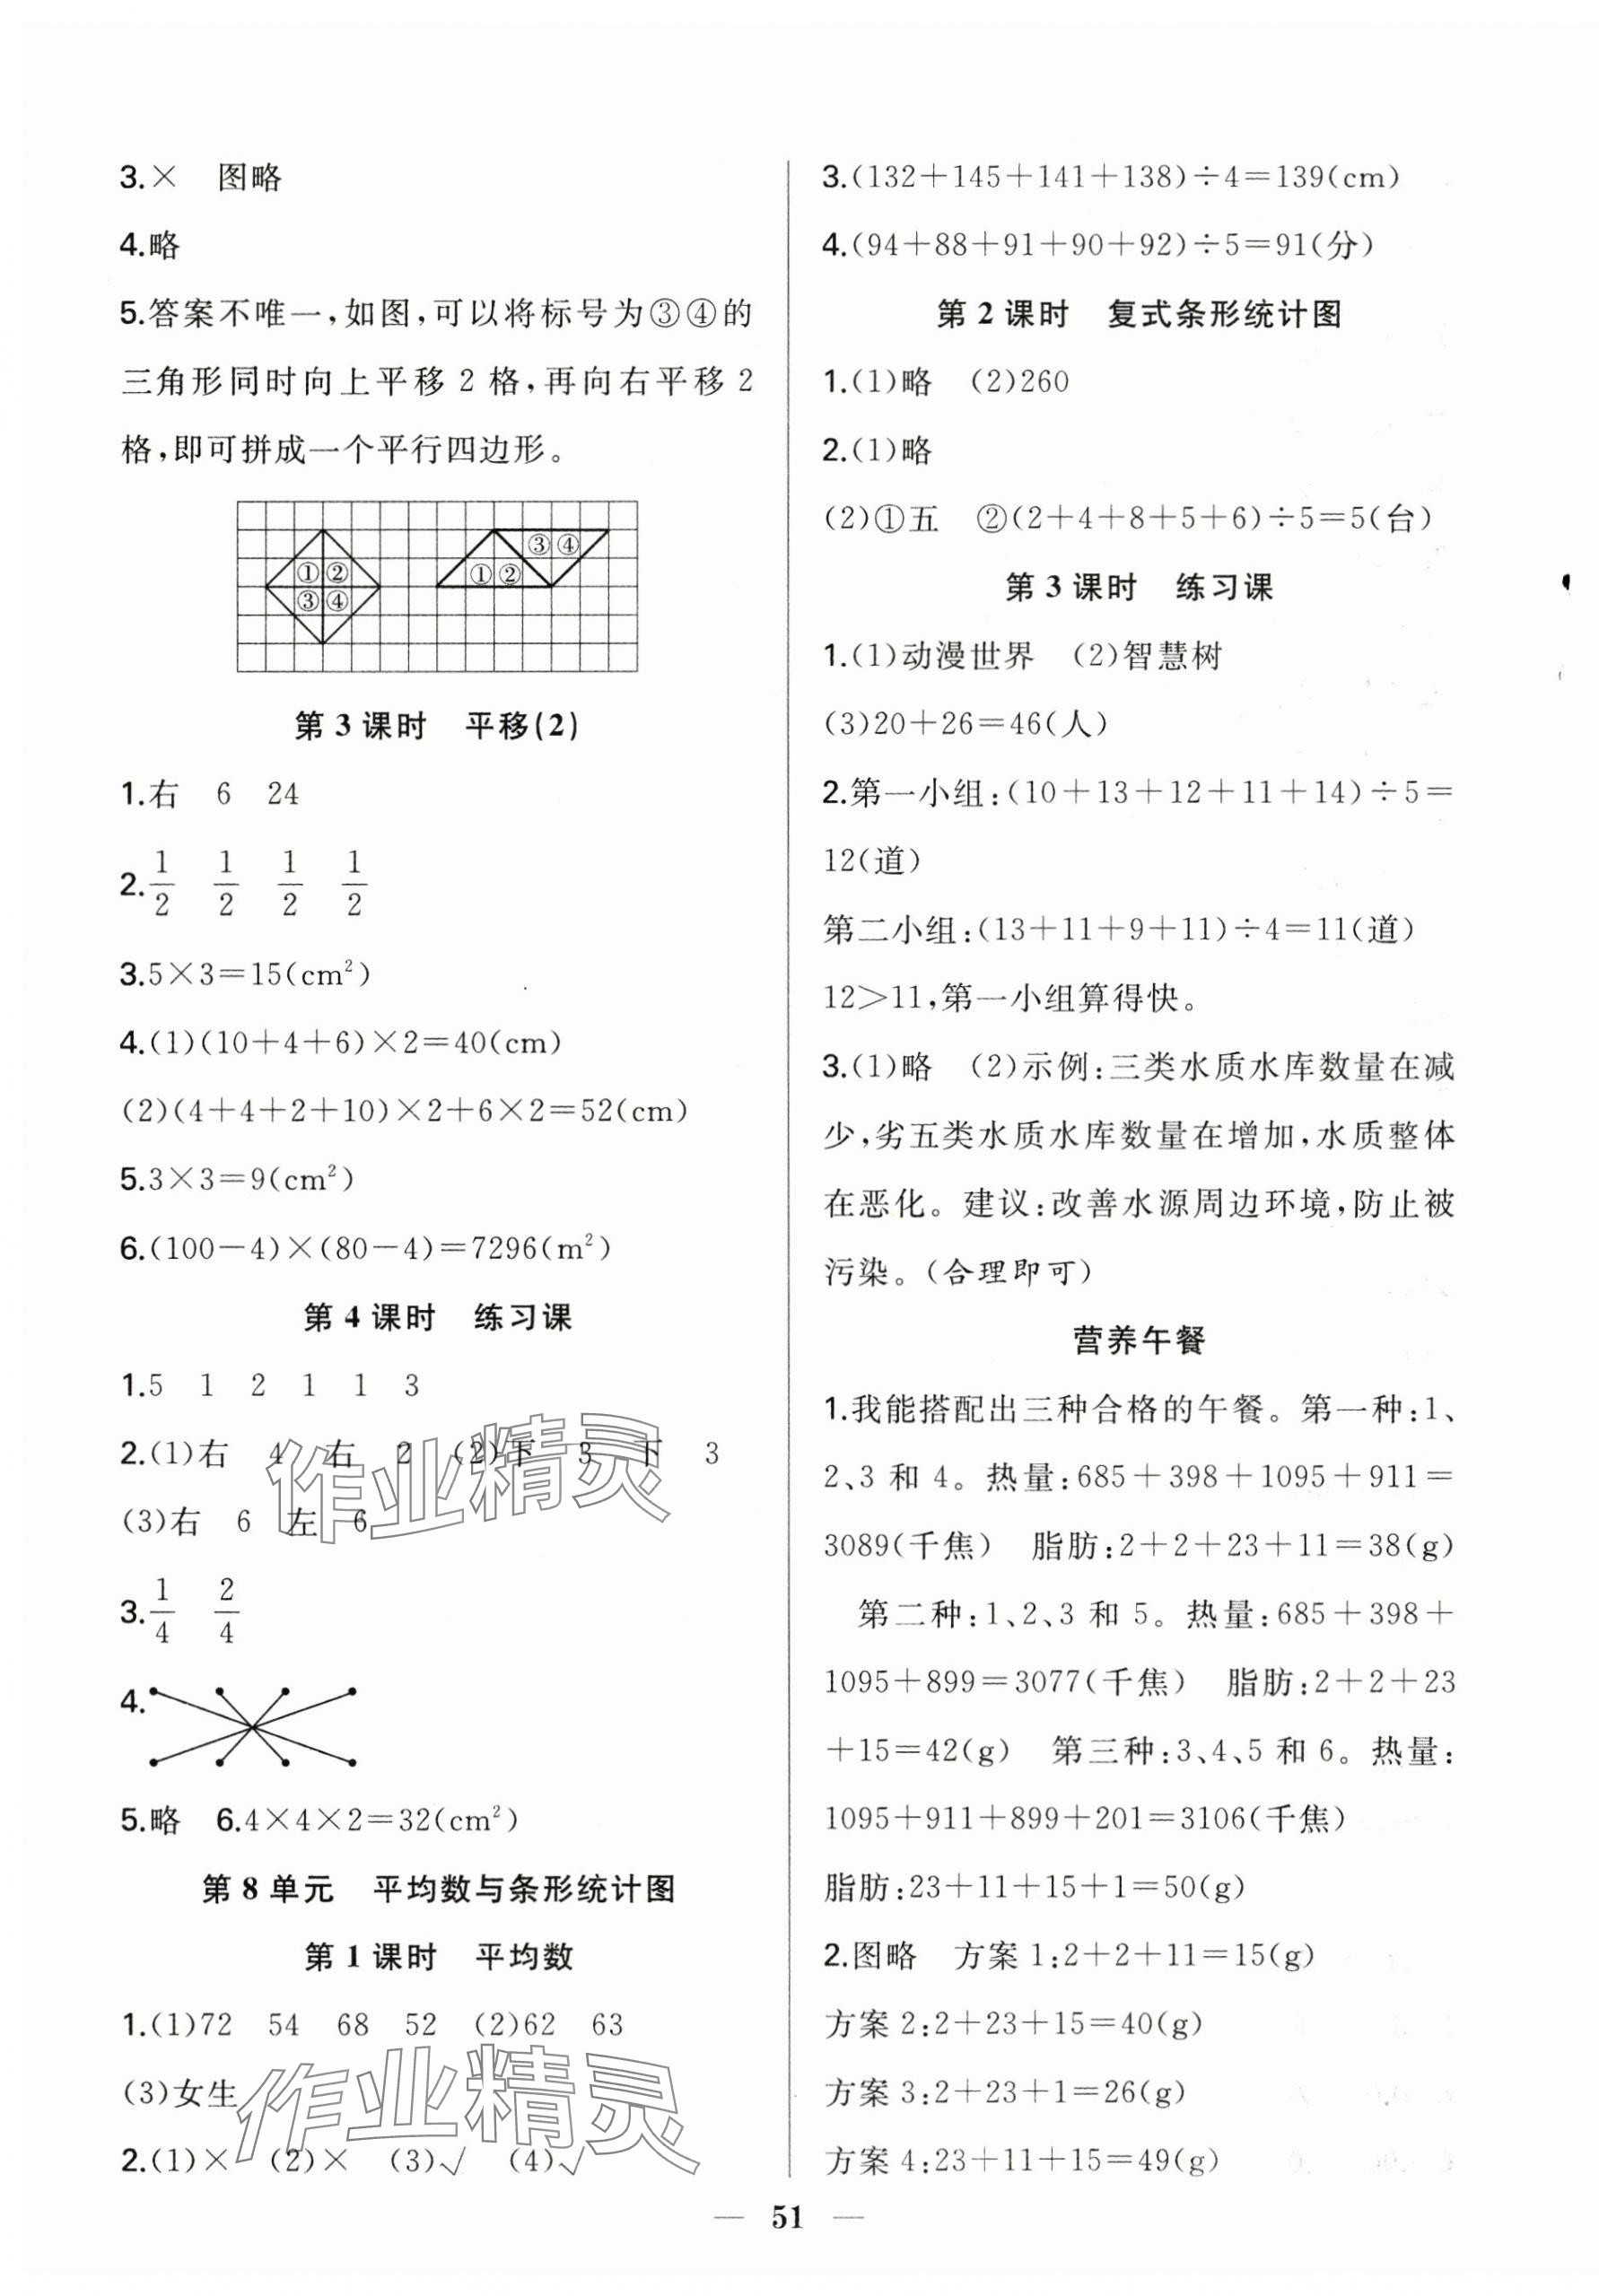 3.×　图略
4.略
5.答案不唯一,如图,可以将标号为③④的
三角形同时向上平移 2 格,再向右平移 2
格,即可拼成一个平行四边形。
① ②
③ ④
③ ④
① ②
第 3 课时　平移(2)
1.右　6　24
2. 1/2　1/2　1/2　1/2
3.5×3=15(cm²)
4.(1)(10+4+6)×2=40(cm)
(2)(4+4+2+10)×2+6×2=52(cm)
5.3×3=9(cm²)
6.(100-4)×(80-4)=7296(m²)
第 4 课时　练习课
1.5　1　2　1　1　3
2.(1)右　4　右　2　(2)下　3　下　3
(3)右　6　左　6
3. 1/4　2/4
4.
5.略　6.4×4×2=32(cm²)
第 8 单元　平均数与条形统计图
第 1 课时　平均数
1.(1)72　54　68　52　(2)62　63
(3)女生
2.(1)×　(2)×　(3)√　(4)√
3.(132+145+141+138)÷4=139(cm)
4.(94+88+91+90+92)÷5=91(分)
第 2 课时　复式条形统计图
1.(1)略　(2)260
2.(1)略
(2)①五　②(2+4+8+5+6)÷5=5(台)
第 3 课时　练习课
1.(1)动漫世界　(2)智慧树
(3)20+26=46(人)
2.第一小组:(10+13+12+11+14)÷5=
12(道)
第二小组:(13+11+9+11)÷4=11(道)
12>11,第一小组算得快。
3.(1)略　(2)示例:三类水质水库数量在减
少,劣五类水质水库数量在增加,水质整体
在恶化。建议:改善水源周边环境,防止被
污染。(合理即可)
营养午餐
1.我能搭配出三种合格的午餐。第一种:1、
2、3 和 4。热量:685+398+1095+911=
3089(千焦)　脂肪:2+2+23+11=38(g)
第二种:1、2、3 和 5。热量:685+398+
1095+899=3077(千焦)　脂肪:2+2+23
+15=42(g)　第三种:3、4、5 和 6。热量:
1095+911+899+201=3106(千焦)
脂肪:23+11+15+1=50(g)
2.图略　方案 1:2+2+11=15(g)
方案 2:2+23+15=40(g)
方案 3:2+23+1=26(g)
方案 4:23+11+15=49(g)
— 51 —
作业精灵
作业精灵